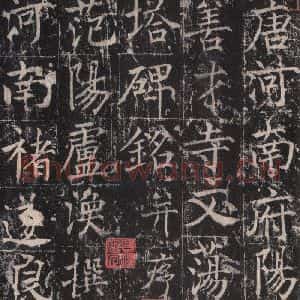 唐河南府陽
善才寺文蕩
塔碑銘并序
范陽盧渙撰
河南褚遂良